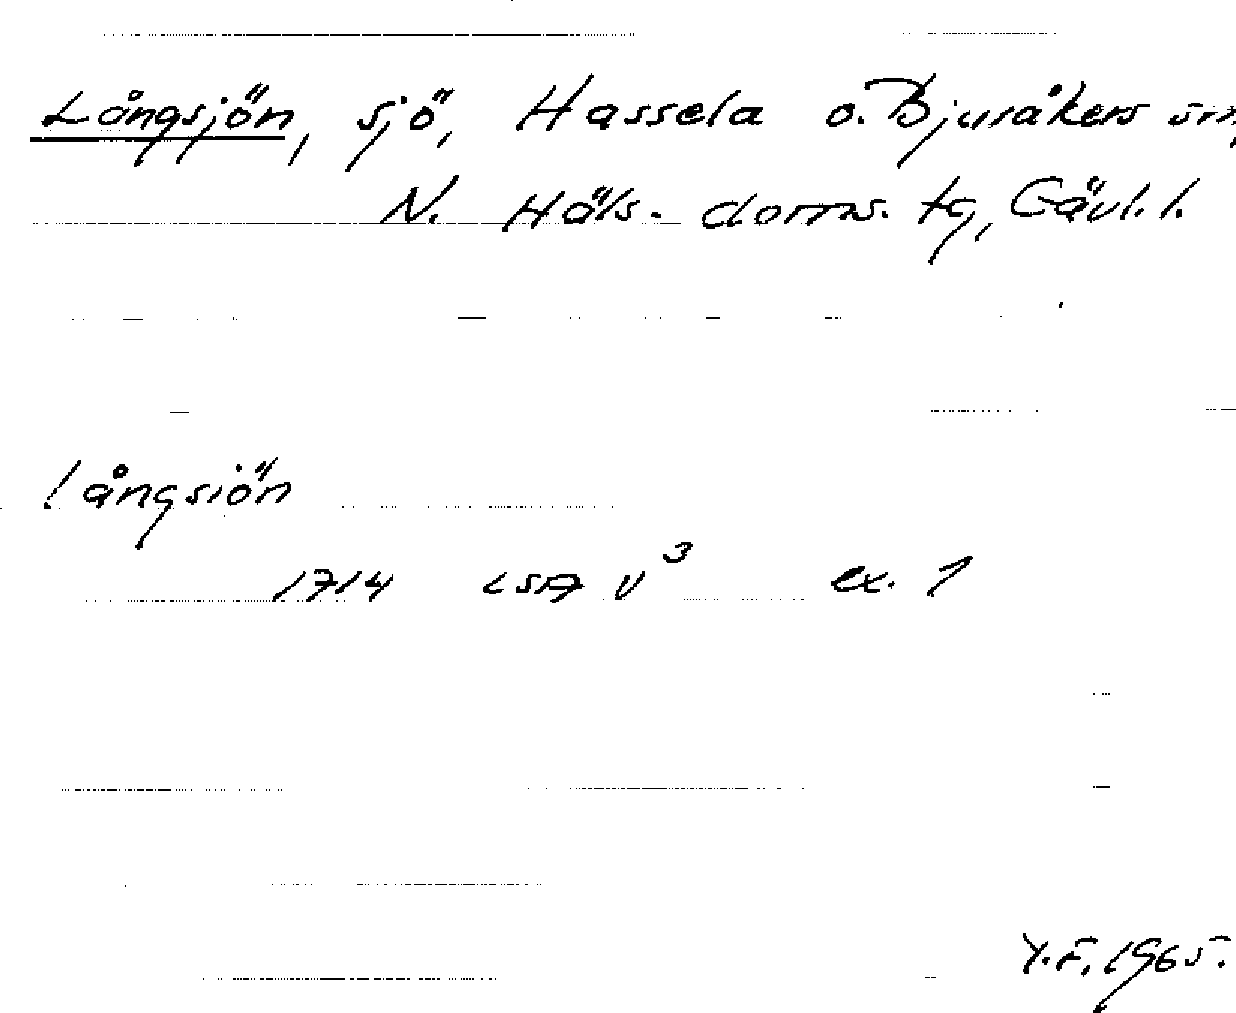 Långsjön, sjö, Hassela o. Bjuråkers srr,
N. Häls. doms. tg, Gävl. l.
långsiön
1714 LSA V³ ex. 1
Y.F. 1965.